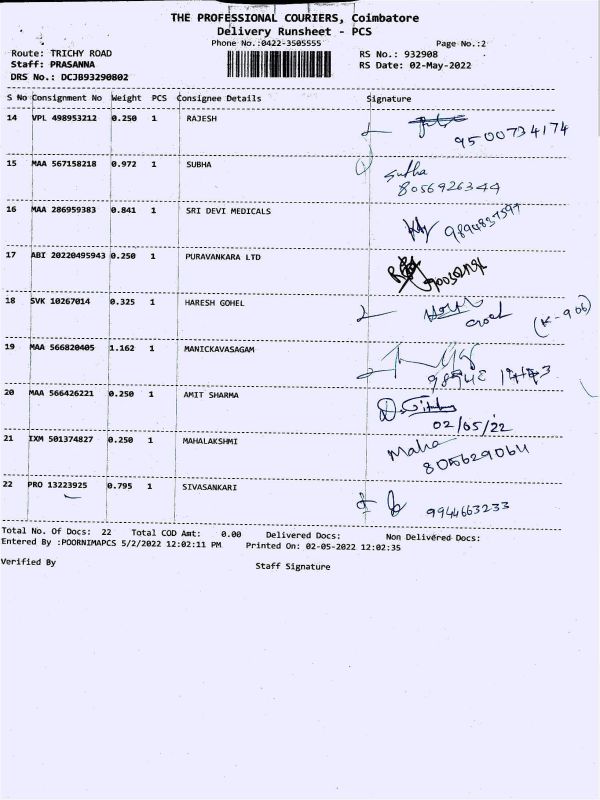 THE PROFESSIONAL COURIERS, Coimbatore
Delivery Runsheet - PCS
Phone No.:0422-3505555
Page No.:2
Route: TRICHY ROAD
RS No.: 932908
Staff: PRASANNA
RS Date: 02-May-2022
DRS No.: DCJB93290802
S No Consignment No Weight PCS Consignee Details Signature
14 VPL 498953212 0.250 1 RAJESH
9500734174
15 MAA 567158218 0.972 1 SUBHA
Subha
8056926344
16 MAA 286959383 0.841 1 SRI DEVI MEDICALS
17 ABI 20220495943 0.250 1 PURAVANKARA LTD
18 SVK 10267014 0.325 1 HARESH GOHEL
(K-906)
19 MAA 566820405 1.162 1 MANICKAVASAGAM
20 MAA 566426221 0.250 1 AMIT SHARMA
02/05/22
21 IXM 501374827 0.250 1 MAHALAKSHMI
Maha
8056629064
22 PRO 13223925 0.795 1 SIVASANKARI
9944663233
Total No. Of Docs: 22 Total COD Amt: 0.00 Delivered Docs: Non Delivered Docs:
Entered By :POORNIMAPCS 5/2/2022 12:02:11 PM Printed On: 02-05-2022 12:02:35
Verified By
Staff Signature